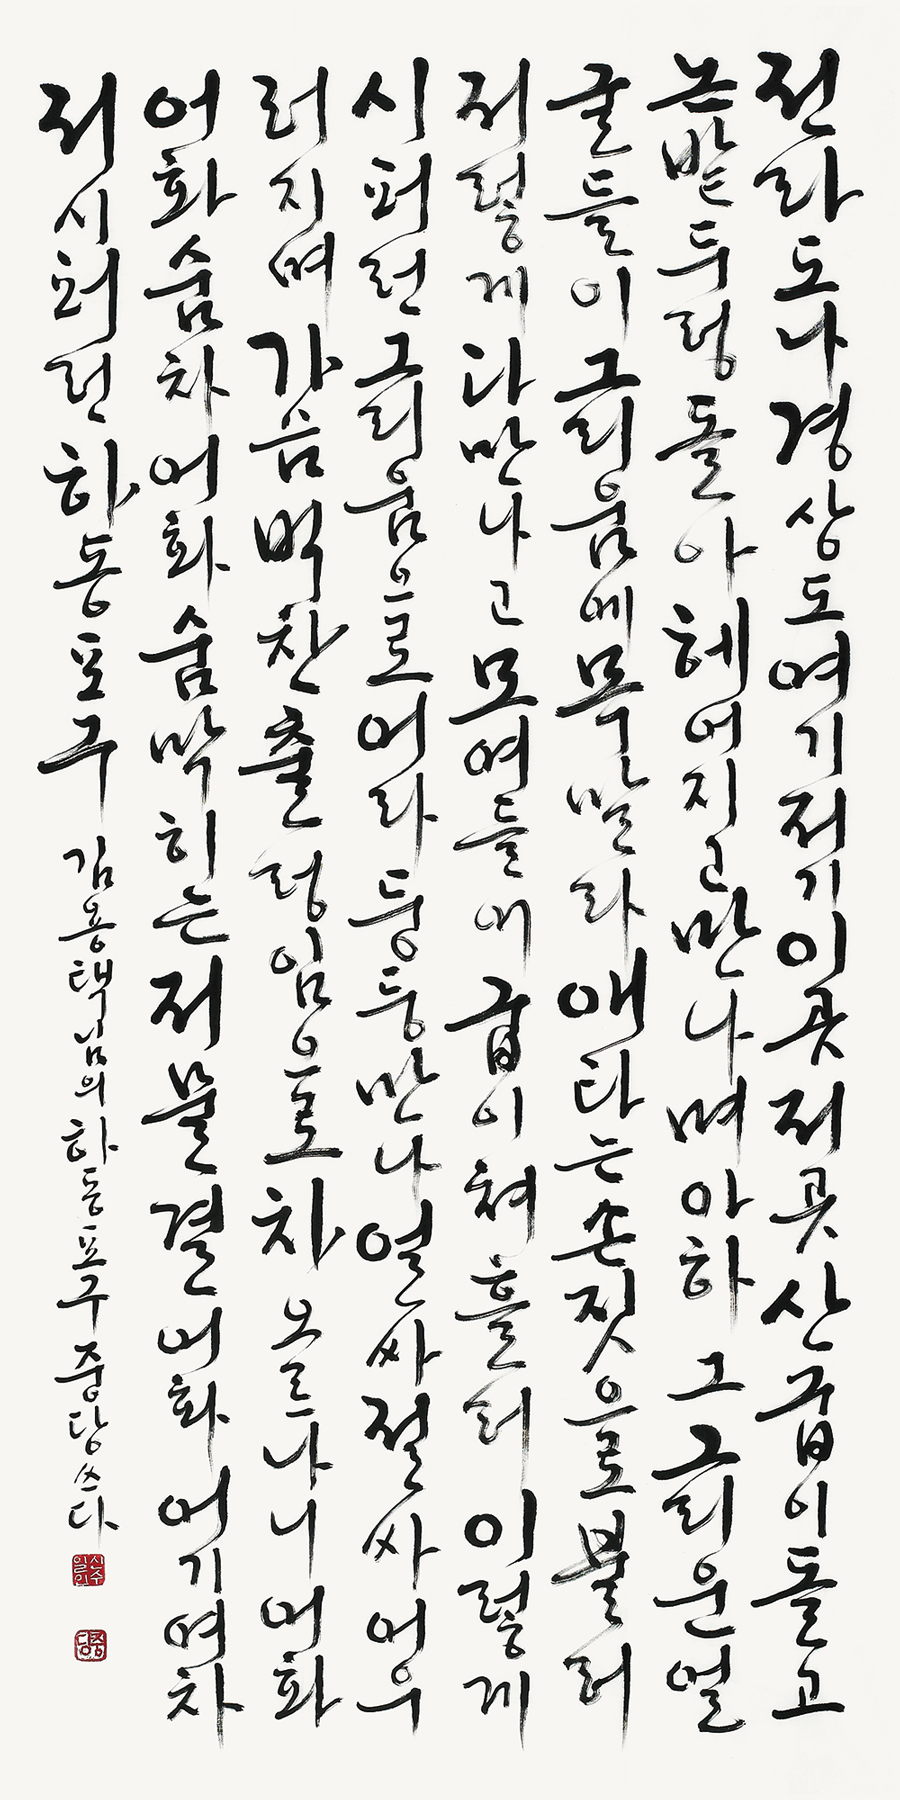 전라도나경상도여기저기이곳저곳산굽이돌고
논밭두렁돌아헤어지고만나며아하그그리운얼
굴들이그리움에목말라애타는손짓으로불러
저렇게다만나고모여들어굽이쳐흘러이렇게
시퍼런그리움으로어라둥둥만나얼싸절싸어우
러지며가슴벅찬출렁임으로차오르나니어화
어화숨차어화숨막히는저물결어화어기여차
저시퍼런하동포구 김용택님의하동포구중당쓰다
중당